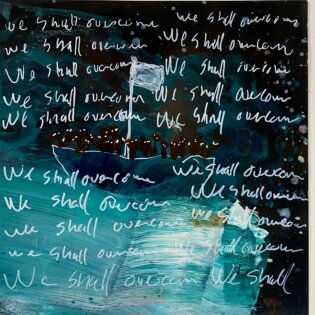 we shall overcome we shall overcome
we shall overcome We shall overcome
We shall overcome We shall overcome
We shall overcome We shall overcome
We shall overcome We shall overcome
We shall overcome We shall overcome
We shall overcome We shall overcome
We shall overcome We shall overcome
we shall overcome we shall overcome
we shall overcome We shall overcome
We shall overcome We shall